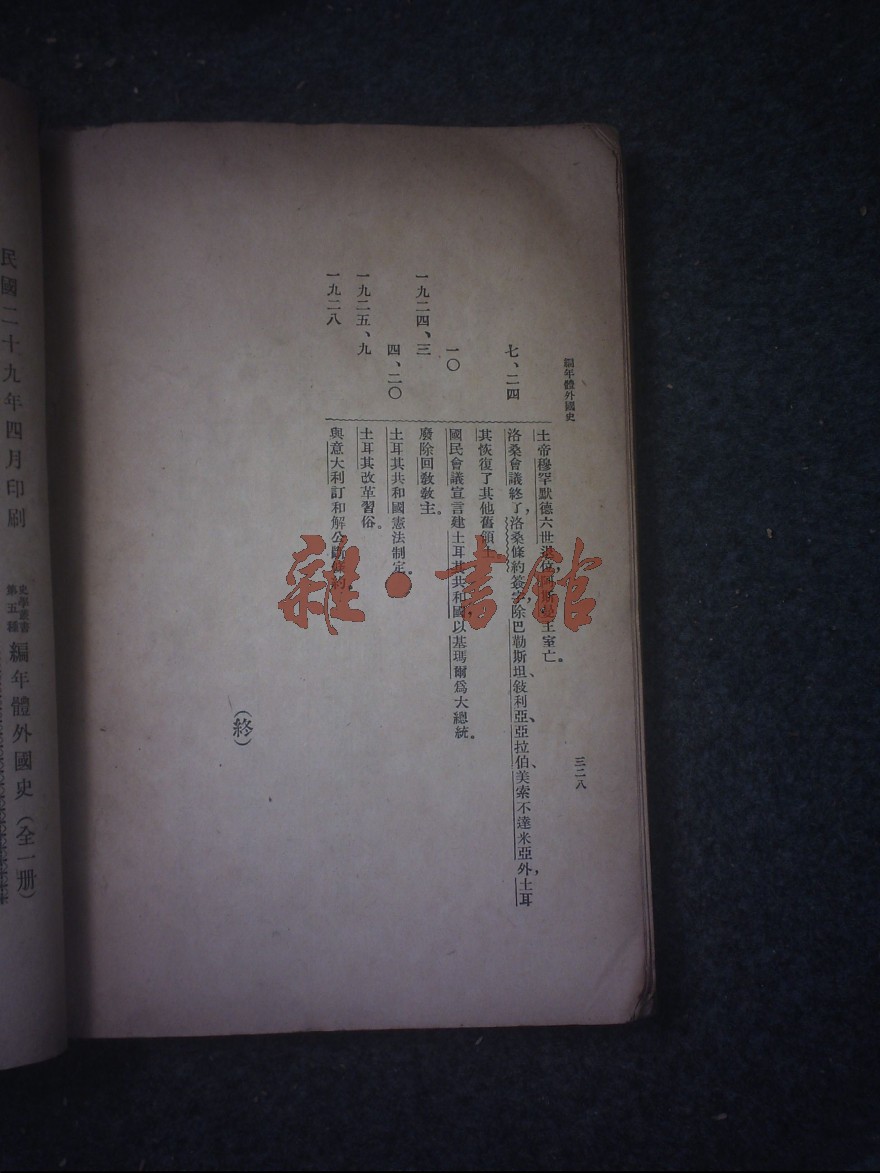 編年體外國史
三二八
土帝穆罕默德六世退位,王室亡。
七、二四 洛桑會議終了,洛桑條約簽字,除巴勒斯坦、敍利亞、亞拉伯、美索不達米亞外,土耳
其恢復了其他舊領土
一〇 國民會議宣言建土耳其共和國,以基瑪爾爲大總統。
一九二四、三 廢除回敎敎主。
四、二〇 土耳其共和國憲法制定。
一九二五、九 土耳其改革習俗。
一九二八 與意大利訂和解公斷條約。
(終)
雜·書館
民國二十九年四月印刷
史學叢書
第五種
編年體外國史(全一册)